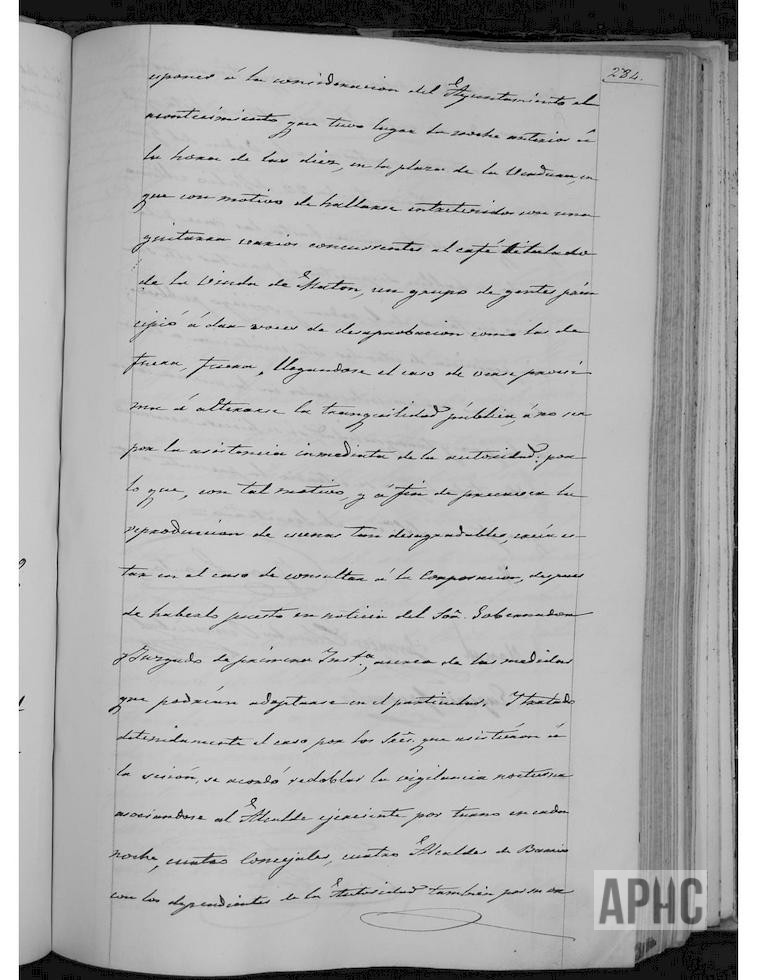 284.
uponer á la consideracion del Ayuntamiento el
acontecimiento que tuvo lugar la noche anterior á
la hora de las diez, en la plaza de la Verdura, en
que con motivo de hallarse entretenidos con una
guitarra varios concurrentes al café titulado
de la Viuda de Maton, un grupo de gentes prin
cipió á dar voces de desaprobacion como las de
fuera, fuera, llegandose el caso de verse procsi
ma á alterarse la tranquilidad pública, á no ser
por la asistencia inmediata de la autoridad; por
lo que, con tal motivo, y á fin de precaver la
reproduccion de escenas tan desagradables, creía es-
tar en el caso de consultar á la Corporacion, despues
de haberlo puesto en noticia del Sor. Gobernador
y Juzgado de primera Insta., acerca de las medidas
que podrían adoptarse en el particular. Y tratado
detenidamente el caso por los Sres. que asistieron á
la sesión, se acordó redoblar la vigilancia nocturna
asociandose al Alcalde ejerciente por turno en cada
noche, cuatro Concejales, cuatro Alcaldes de Barrio
con los dependientes de la Autoridad tambien por su or
APHC